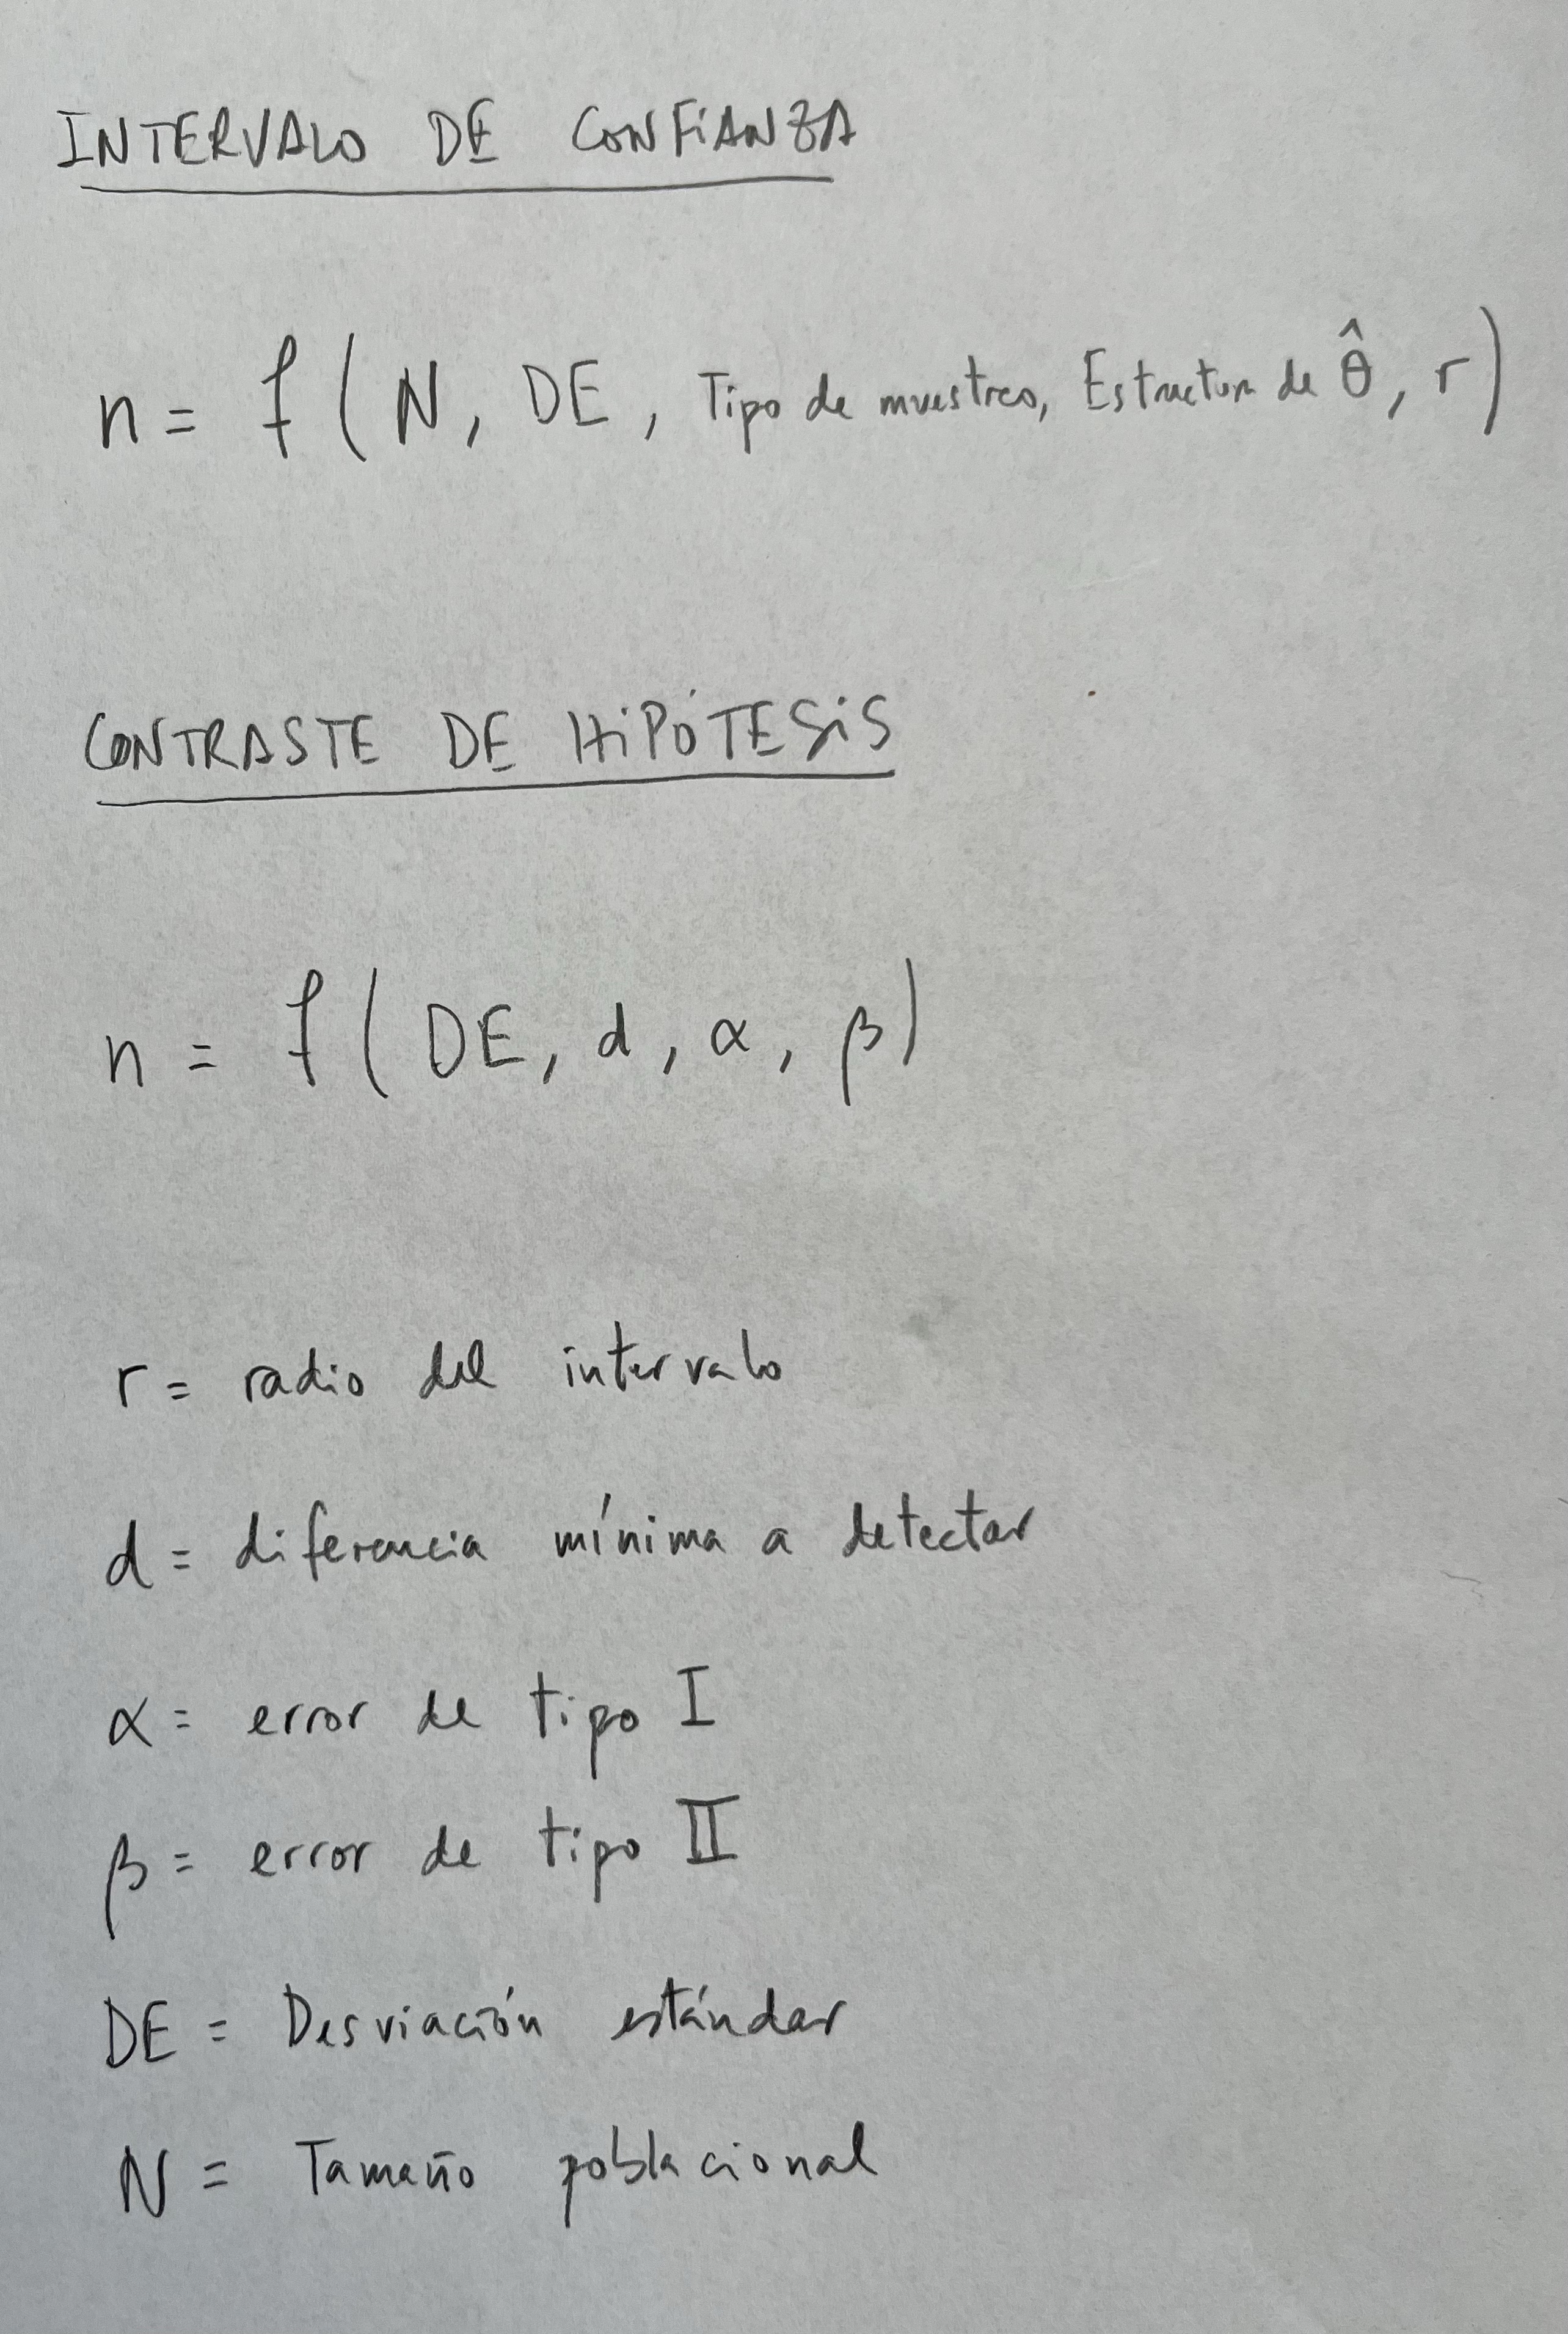 INTERVALO DE CONFIANZA
n = f ( N, DE, Tipo de muestreo, Estructura de θ̂, r )
CONTRASTE DE HIPÓTESIS
n = f ( DE, d, α, β )
r = radio del intervalo
d = diferencia mínima a detectar
α = error de tipo I
β = error de tipo II
DE = Desviación estándar
N = Tamaño poblacional